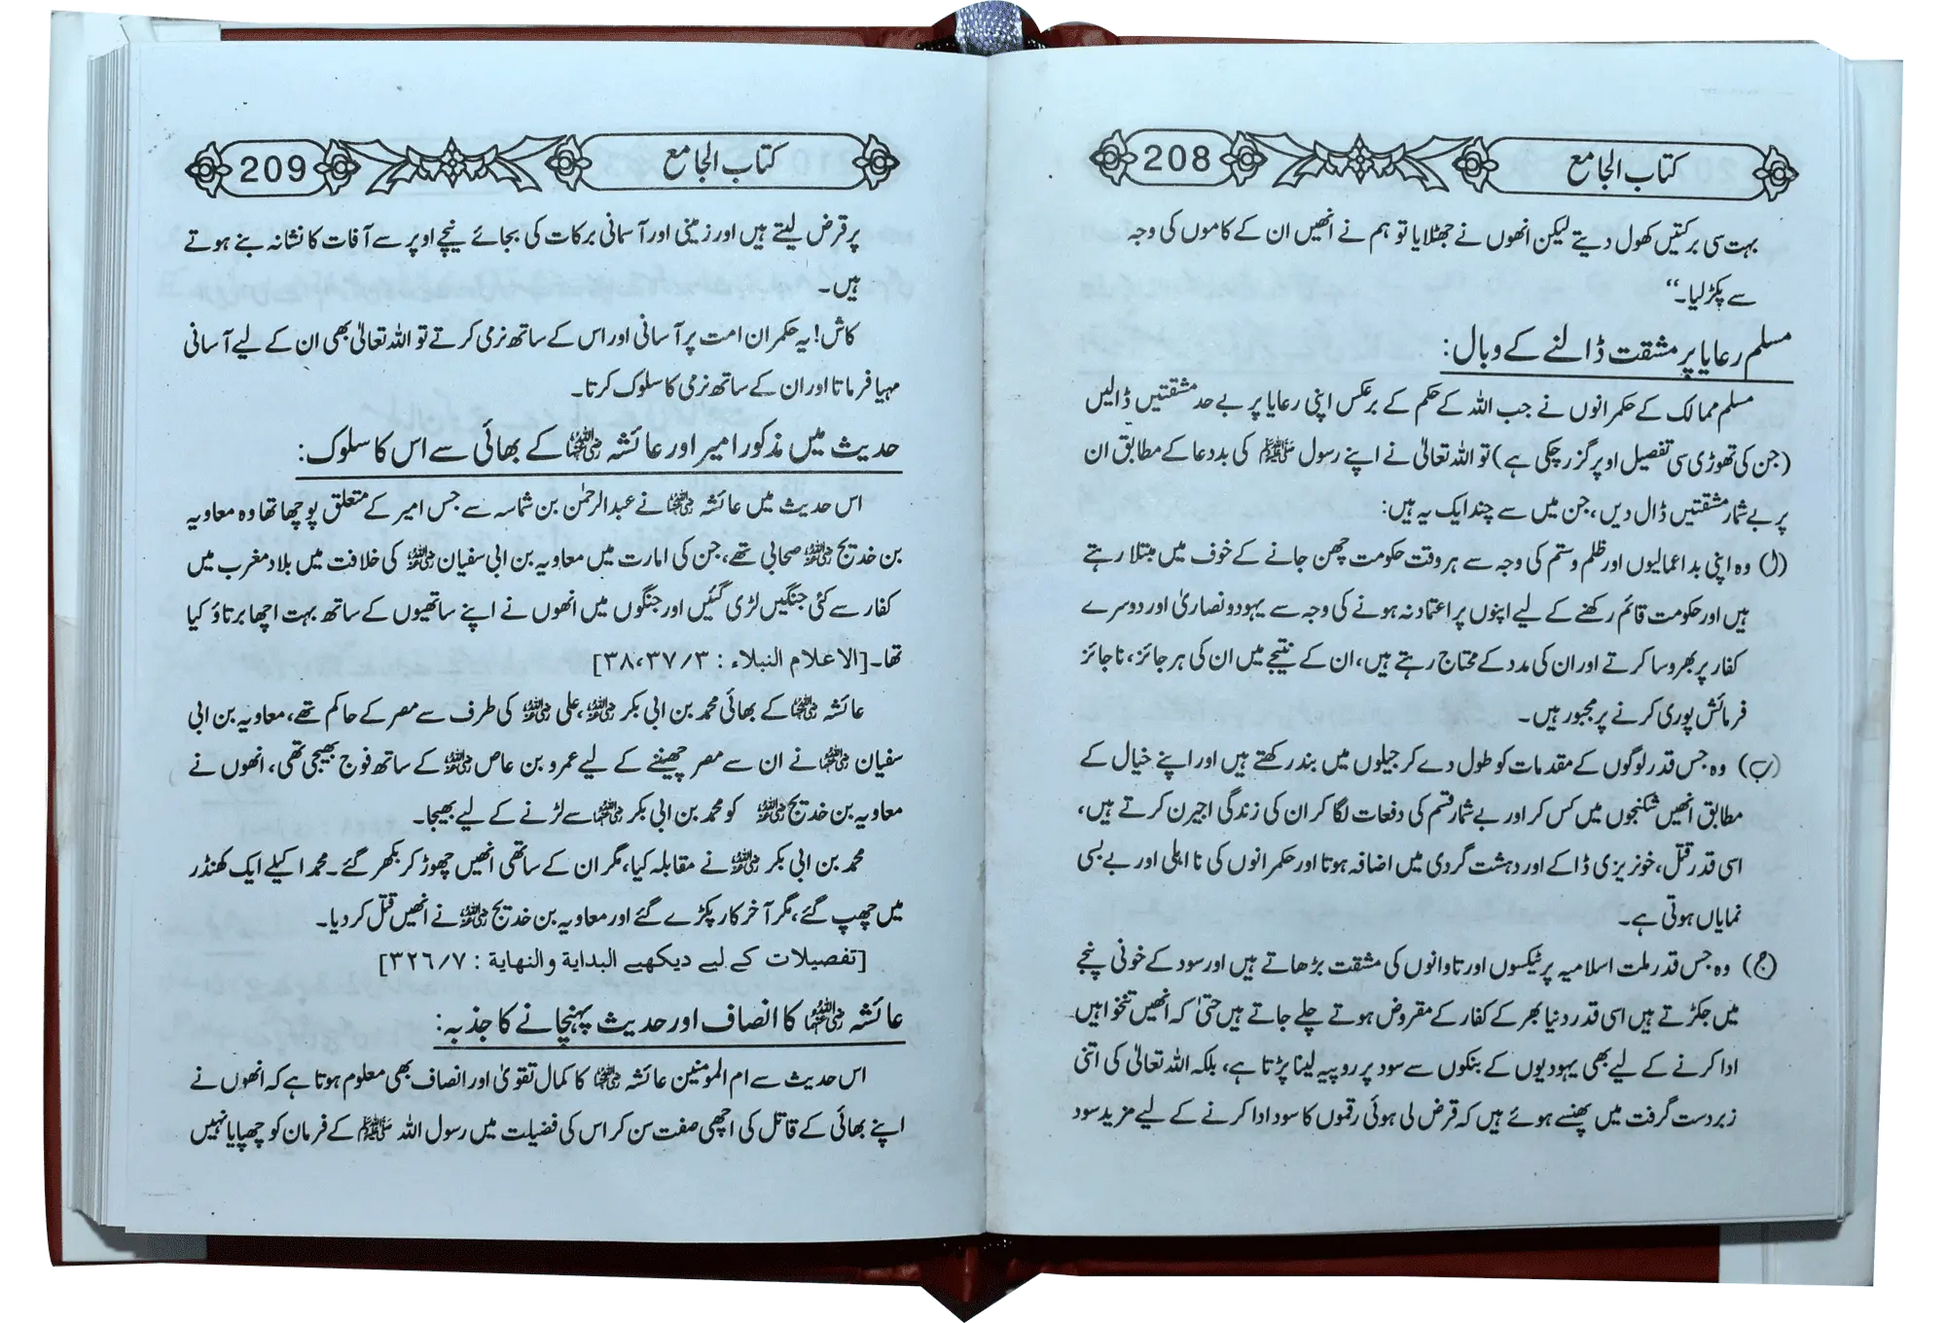 208
کتاب الجامع
بہت سی برکتیں کھول دیتے لیکن انھوں نے جھٹلایا تو ہم نے انھیں ان کے کاموں کی وجہ
سے پکڑ لیا۔“
مسلم رعایا پر مشقت ڈالنے کے وبال:
مسلم ممالک کے حکمرانوں نے جب اللہ کے حکم کے برعکس اپنی رعایا پر بے حد مشقتیں ڈالیں
(جن کی تھوڑی سی تفصیل اوپر گزر چکی ہے) تو اللہ تعالیٰ نے اپنے رسول ﷺ کی بددعا کے مطابق ان
پر بے شمار مشقتیں ڈال دیں، جن میں سے چند ایک یہ ہیں:
(ا) وہ اپنی بداعمالیوں اور ظلم و ستم کی وجہ سے ہر وقت حکومت چھن جانے کے خوف میں مبتلا رہتے
ہیں اور حکومت قائم رکھنے کے لیے اپنوں پر اعتماد نہ ہونے کی وجہ سے یہود و نصاریٰ اور دوسرے
کفار پر بھروسا کرتے اور ان کی مدد کے محتاج رہتے ہیں، ان کے نتیجے میں ان کی ہر جائز، ناجائز
فرمائش پوری کرنے پر مجبور ہیں۔
(ب) وہ جس قدر لوگوں کے مقدمات کو طول دے کر جیلوں میں بند رکھتے ہیں اور اپنے خیال کے
مطابق انھیں شکنجوں میں کس کر اور بے شمار قسم کی دفعات لگا کر ان کی زندگی اجیرن کرتے ہیں،
اسی قدر قتل، خونریزی ڈاکے اور دہشت گردی میں اضافہ ہوتا اور حکمرانوں کی نا اہلی اور بے بسی
نمایاں ہوتی ہے۔
(ج) وہ جس قدر ملت اسلامیہ پر ٹیکسوں اور تاوانوں کی مشقت بڑھاتے ہیں اور سود کے خونی پنجے
میں جکڑتے ہیں اسی قدر دنیا بھر کے کفار کے مقروض ہوتے چلے جاتے ہیں حتیٰ کہ انھیں تنخواہیں
ادا کرنے کے لیے بھی یہودیوں کے بنکوں سے سود پر روپیہ لینا پڑتا ہے، بلکہ اللہ تعالیٰ کی اتنی
زبردست گرفت میں پھنسے ہوئے ہیں کہ قرض لی ہوئی رقموں کا سود ادا کرنے کے لیے مزید سود
209
کتاب الجامع
پر قرض لیتے ہیں اور زمینی اور آسمانی برکات کی بجائے نیچے اوپر سے آفات کا نشانہ بنے ہوتے
ہیں۔
کاش! یہ حکمران امت پر آسانی اور اس کے ساتھ نرمی کرتے تو اللہ تعالیٰ بھی ان کے لیے آسانی
مہیا فرماتا اور ان کے ساتھ نرمی کا سلوک کرتا۔
حدیث میں مذکور امیر اور عائشہ رضی اللہ عنہا کے بھائی سے اس کا سلوک:
اس حدیث میں عائشہ رضی اللہ عنہا نے عبدالرحمٰن بن شماسہ سے جس امیر کے متعلق پوچھا تھا وہ معاویہ
بن خدیج رضی اللہ عنہ صحابی تھے، جن کی امارت میں معاویہ بن ابی سفیان رضی اللہ عنہ کی خلافت میں بلاد مغرب میں
کفار سے کئی جنگیں لڑی گئیں اور جنگوں میں انھوں نے اپنے ساتھیوں کے ساتھ بہت اچھا برتاؤ کیا
تھا۔ [الاعلام النبلاء : ۳/ ۳۷، ۳۸]
عائشہ رضی اللہ عنہا کے بھائی محمد بن ابی بکر رضی اللہ عنہ، علی رضی اللہ عنہ کی طرف سے مصر کے حاکم تھے، معاویہ بن ابی
سفیان رضی اللہ عنہما نے ان سے مصر چھیننے کے لیے عمرو بن عاص رضی اللہ عنہ کے ساتھ فوج بھیجی تھی، انھوں نے
معاویہ بن خدیج رضی اللہ عنہ کو محمد بن ابی بکر رضی اللہ عنہما سے لڑنے کے لیے بھیجا۔
محمد بن ابی بکر رضی اللہ عنہ نے مقابلہ کیا، مگر ان کے ساتھی انھیں چھوڑ کر بکھر گئے۔ محمد اکیلے ایک کھنڈر
میں چھپ گئے، مگر آخر کار پکڑے گئے اور معاویہ بن خدیج رضی اللہ عنہ نے انھیں قتل کر دیا۔
[تفصیلات کے لیے دیکھیے البدایة والنهایة : ۷/ ۳۲٦]
عائشہ رضی اللہ عنہا کا انصاف اور حدیث پہنچانے کا جذبہ:
اس حدیث سے ام المومنین عائشہ رضی اللہ عنہا کا کمال تقویٰ اور انصاف بھی معلوم ہوتا ہے کہ انھوں نے
اپنے بھائی کے قاتل کی اچھی صفت سن کر اس کی فضیلت میں رسول اللہ ﷺ کے فرمان کو چھپایا نہیں